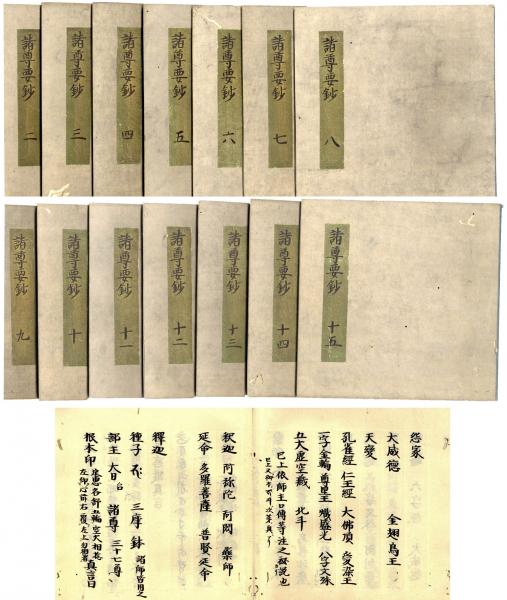 諸尊要鈔 二
諸尊要鈔 三
諸尊要鈔 四
諸尊要鈔 五
諸尊要鈔 六
諸尊要鈔 七
諸尊要鈔 八
諸尊要鈔 九
諸尊要鈔 十
諸尊要鈔 十一
諸尊要鈔 十二
諸尊要鈔 十三
諸尊要鈔 十四
諸尊要鈔 十五
怨家
大威德 金翅鳥王
天變
孔雀經 仁王經 大佛頂 愛染王
一字金輪 尊星王 熾盛光 八字文殊
五大虛空藏 北斗
已上依師主口傳等注之
釈迦 阿弥陀 阿閦 藥師
延命 多羅菩薩 普賢延命
釋迦
種子 三摩 鉢 諸師皆用之
部主 大日 諸尊 三十七尊
根本印 真言曰